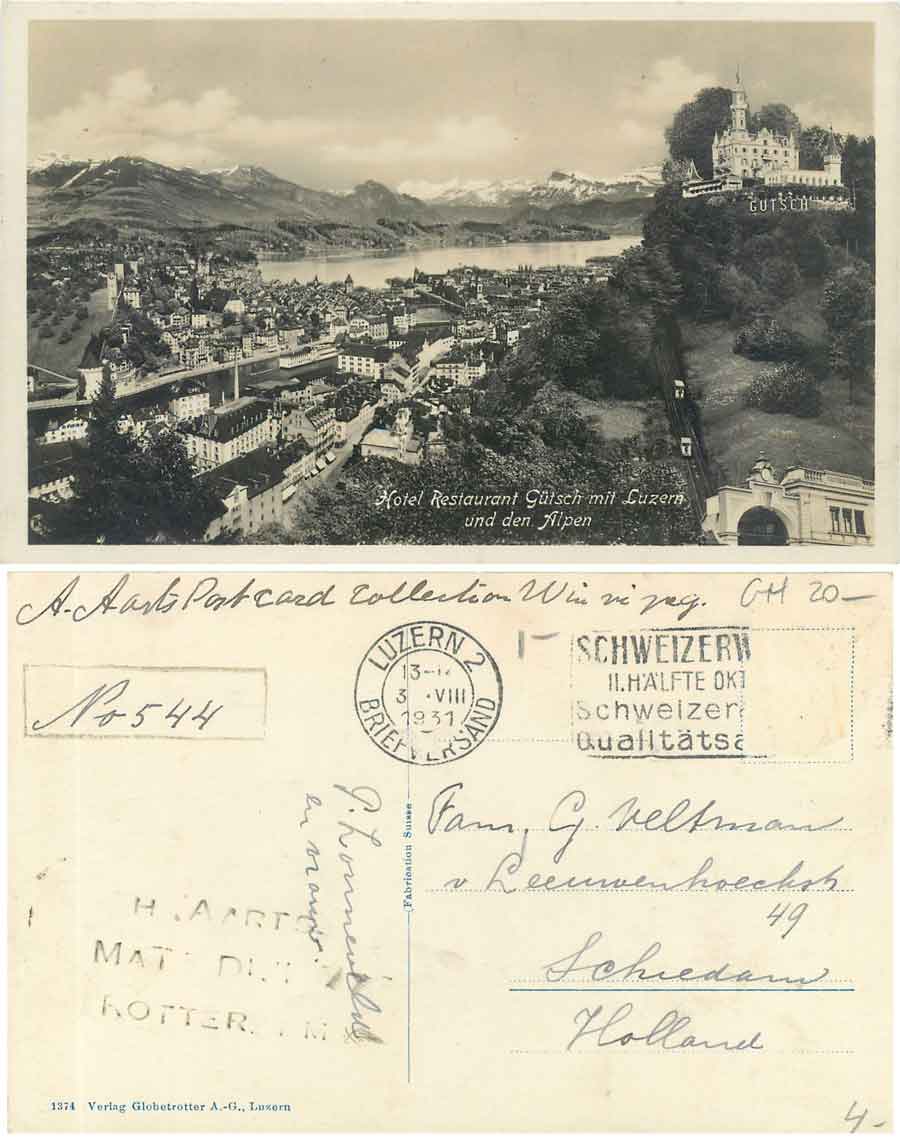 GÜTSCH
Hotel Restaurant Gütsch mit Luzern
und den Alpen
A. Aarts Post card collection Winnipeg. GH 20-
No 544
LUZERN 2
13-
3 .VIII
1931
BRIEFVERSAND
SCHWEIZERW
II. HÄLFTE OKT
Schweizer
Qualitätsa
Fam. G. Veltman
v Leeuwenhoeckstr
49
Schiedam
Holland
P.
en vrouw.
(Fabrication Suisse
H. AARTS
MAT DIJ
ROTTER M
1374 Verlag Globetrotter A.-G., Luzern
4-